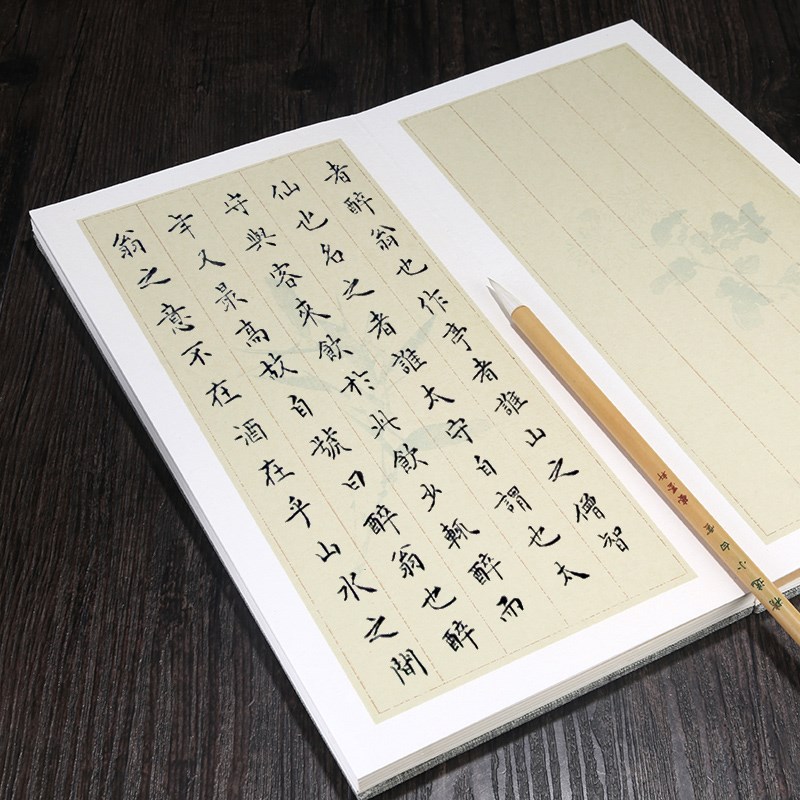 者醉翁也作亭者誰山之僧智
仙也名之者誰太守自謂也太
守與客來飲於此飲少輒醉而
年又最高故自號曰醉翁也醉
翁之意不在酒在乎山水之間